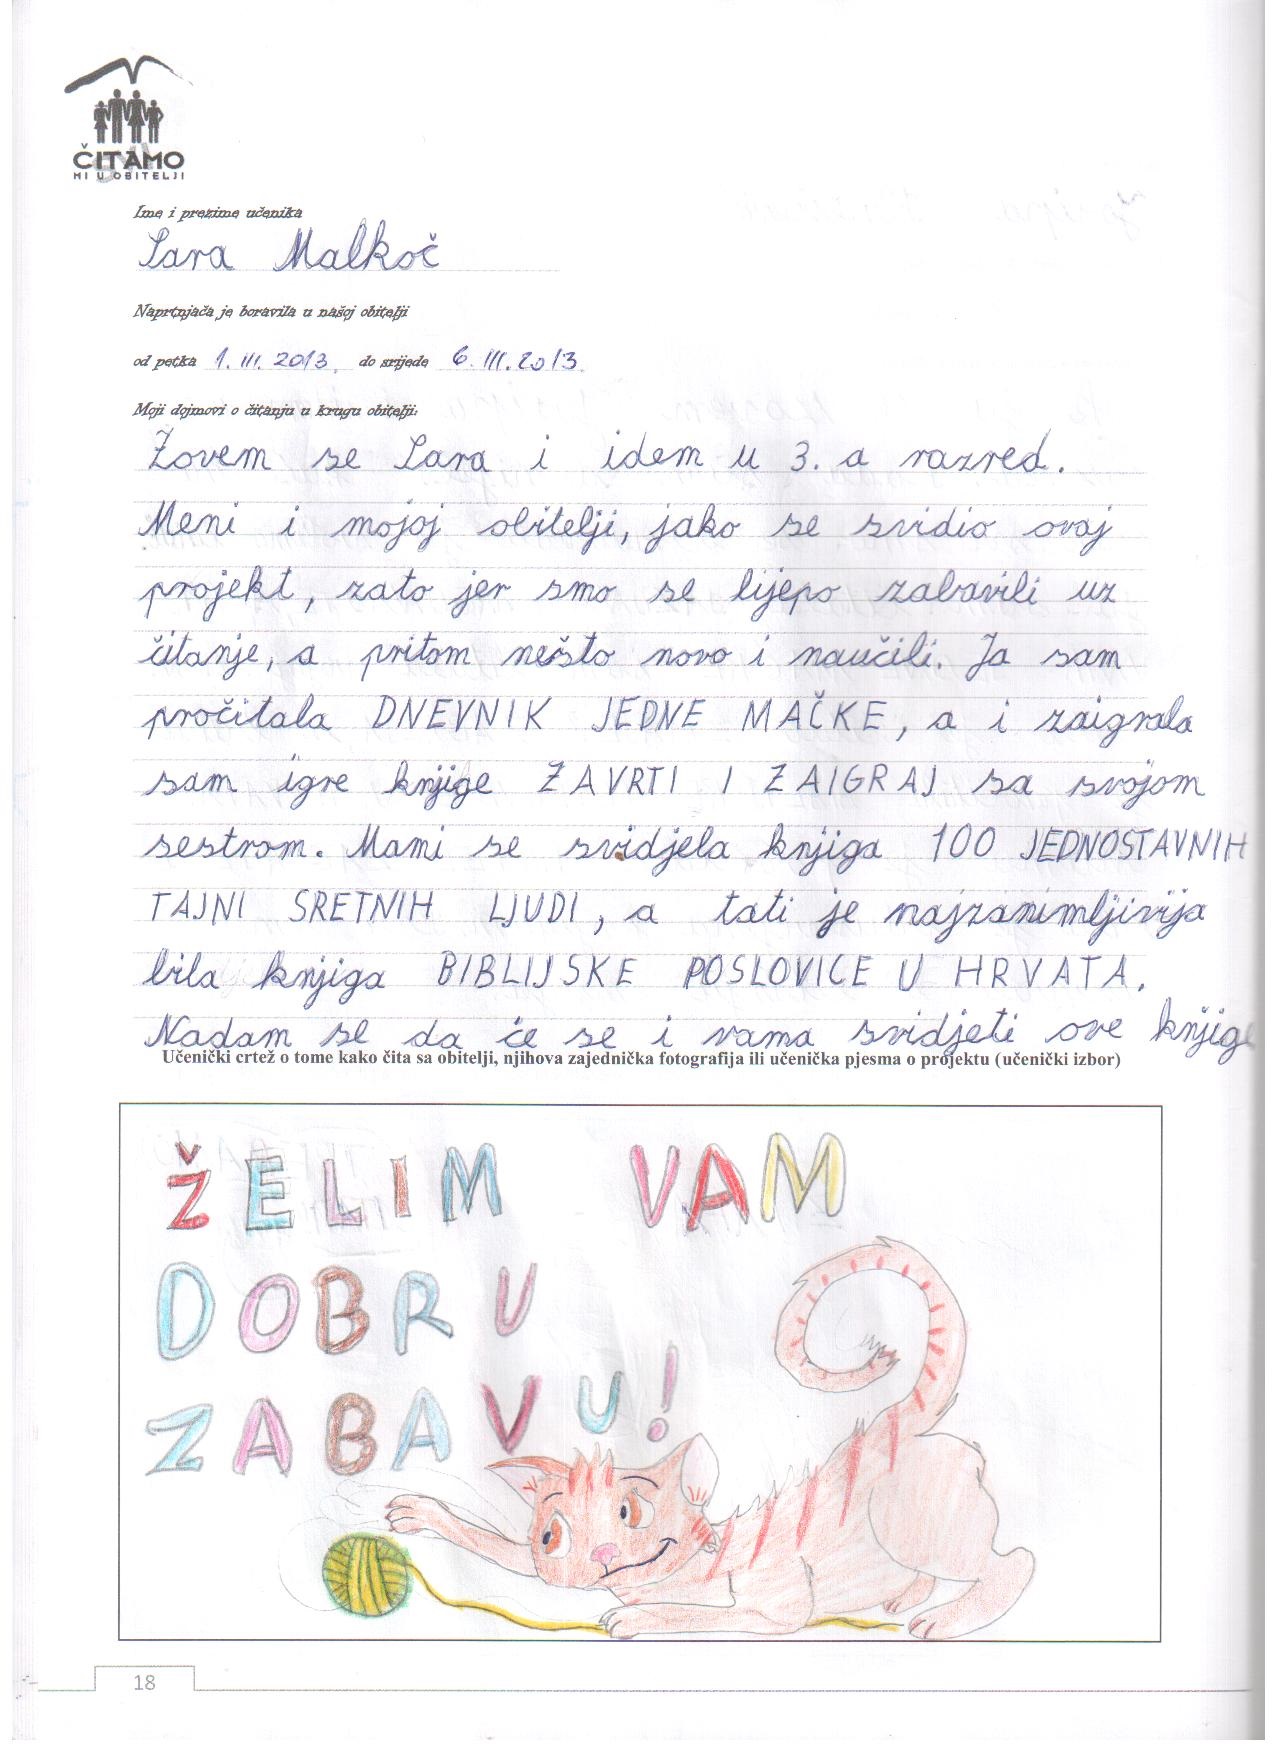 ČITAMO
MI U OBITELJI
Ime i prezime učenika
Sara Malkoč
Naprtnjača je boravila u našoj obitelji
od petka 1. III. 2013. do srijede 6. III. 2013.
Moji dojmovi o čitanju u krugu obitelji:
Zovem se Sara i idem u 3. a razred.
Meni i mojoj obitelji, jako se svidio ovaj
projekt, zato jer smo se lijepo zabavili uz
čitanje, a pritom nešto novo i naučili. Ja sam
pročitala DNEVNIK JEDNE MAČKE, a i zaigrala
sam igre knjige ZAVRTI I ZAIGRAJ sa svojom
sestrom. Mami se svidjela knjiga 100 JEDNOSTAVNIH
TAJNI SRETNIH LJUDI, a tati je najzanimljivija
bila knjiga BIBLIJSKE POSLOVICE U HRVATA.
Nadam se da će se i vama svidjeti ove knjige
Učenički crtež o tome kako čita sa obitelji, njihova zajednička fotografija ili učenička pjesma o projektu (učenički izbor)
ŽELIM VAM
DOBRU
ZABAVU!
18